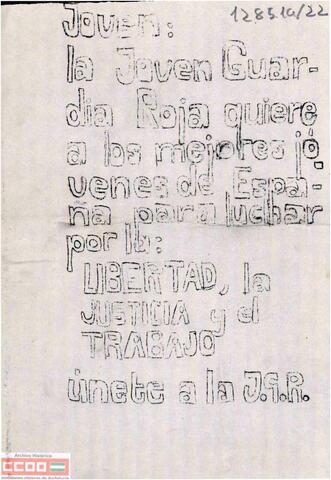 1285.10/22
Joven:
la Joven Guar-
dia Roja quiere
a los mejores jó-
venes de Espa-
ña para luchar
por la:
LIBERTAD, la
JUSTICIA y el
TRABAJO
únete a la J.G.R.
Archivo Histórico
CCOO